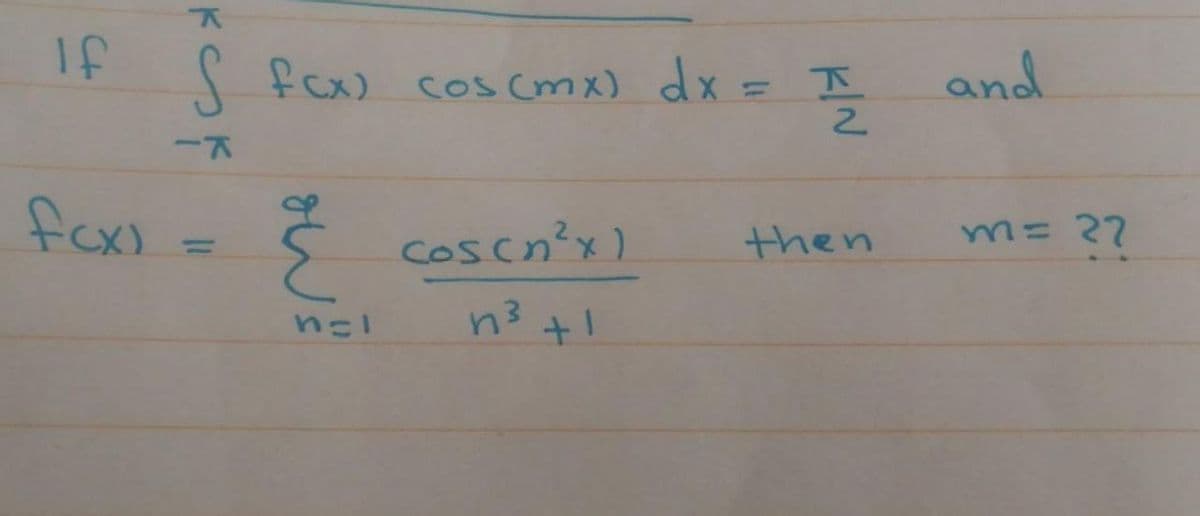 If ∫_{-π}^{π} f(x) cos(mx) dx = π/2 and
f(x) = Σ_{n=1}^{∞} cos(n²x) / (n³ + 1) then m = ??